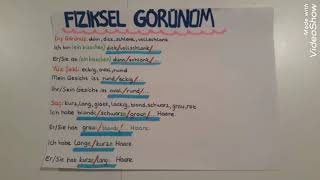 FIZIKSEL GÖRÜNÜM
Dış Görünüş: dünn, dick, schlank, vollschlank
Ich bin (ein bisschen) dick/vollschlank/...
Er/Sie ist (ein bisschen) dünn/schlank/...
Yüz Şekli: eckig, oval, rund
Mein Gesicht ist rund/eckig/...
Ihr/Sein Gesicht ist oval/...
Saç: kurz, lang, glatt, lockig, blond, schwarz, grau, rot
Ich habe blonde/schwarze/graue/... Haare
Er/Sie hat graue/blonde/... Haare
Ich habe lange/kurze Haare
Er/Sie hat kurze/lange Haare
Made with
VideoShow